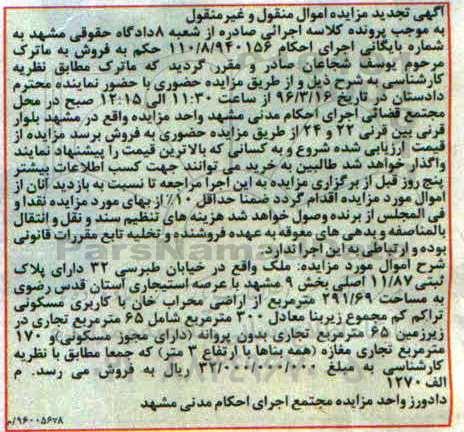 آگهی تجدید مزایده اموال منقول و غیر منقول
به موجب پرونده کلاسه اجرائی صادره از شعبه ۸دادگاه حقوقی مشهد به
شماره بایگانی اجرای احکام ۱۱۰/۸/۹۴۰۱۵۶ حکم به فروش به ماترک
مرحوم یوسف شجاعان صادر و مقرر گردید که ماترک مطابق نظریه
کارشناسی به شرح ذیل و از طریق مزایده حضوری با حضور نماینده محترم
دادستان در تاریخ ۹۶/۳/۱۶ از ساعت ۱۱:۳۰ الی ۱۲:۱۵ صبح در محل
مجتمع قضائی اجرای احکام مدنی مشهد واحد مزایده واقع در مشهد بلوار
قرنی بین قرنی ۲۲ و ۲۴ از طریق مزایده حضوری به فروش برسد مزایده از
قیمت ارزیابی شده شروع و به کسانی که بالاترین قیمت را پیشنهاد نمایند
واگذار خواهد شد طالبین به خرید می توانند جهت کسب اطلاعات بیشتر
پنج روز قبل از برگزاری مزایده به این اجرا مراجعه تا نسبت به بازدید آنان از
اموال مورد مزایده اقدام گردد ضمنا حداقل ۱۰٪ از بهای مورد مزایده نقدا و
فی المجلس از برنده وصول خواهد شد هزینه های تنظیم سند و نقل و انتقال
بالمناصفه و بدهی های معوقه به عهده فروشنده و تخلیه تابع مقررات قانونی
بوده و ارتباطی به این اجرا ندارد.
شرح اموال مورد مزایده: ملک واقع در خیابان طبرسی ۳۲ دارای پلاک
ثبتی ۱۱/۸۷ اصلی بخش ۹ مشهد با عرصه استیجاری آستان قدس رضوی
به مساحت ۲۹۱/۶۹ مترمربع از اراضی محراب خان با کاربری مسکونی
تراکم کم مجموع زیربنا معادل ۳۰۰ مترمربع شامل ۶۵ مترمربع تجاری در
زیرزمین ۶۵ مترمربع تجاری بدون پروانه (دارای مجوز مسکونی)و ۱۷۰
مترمربع تجاری مغازه (همه بناها با ارتفاع ۳ متر) که جمعا مطابق با نظریه
کارشناسی به مبلغ ۳۲/۰۰۰/۰۰۰/۰۰۰ ریال به فروش می رسد. م
الف ۱۲۷۰
دادورز واحد مزایده مجتمع اجرای احکام مدنی مشهد
۹۶۰۰۵۶۷۸/م